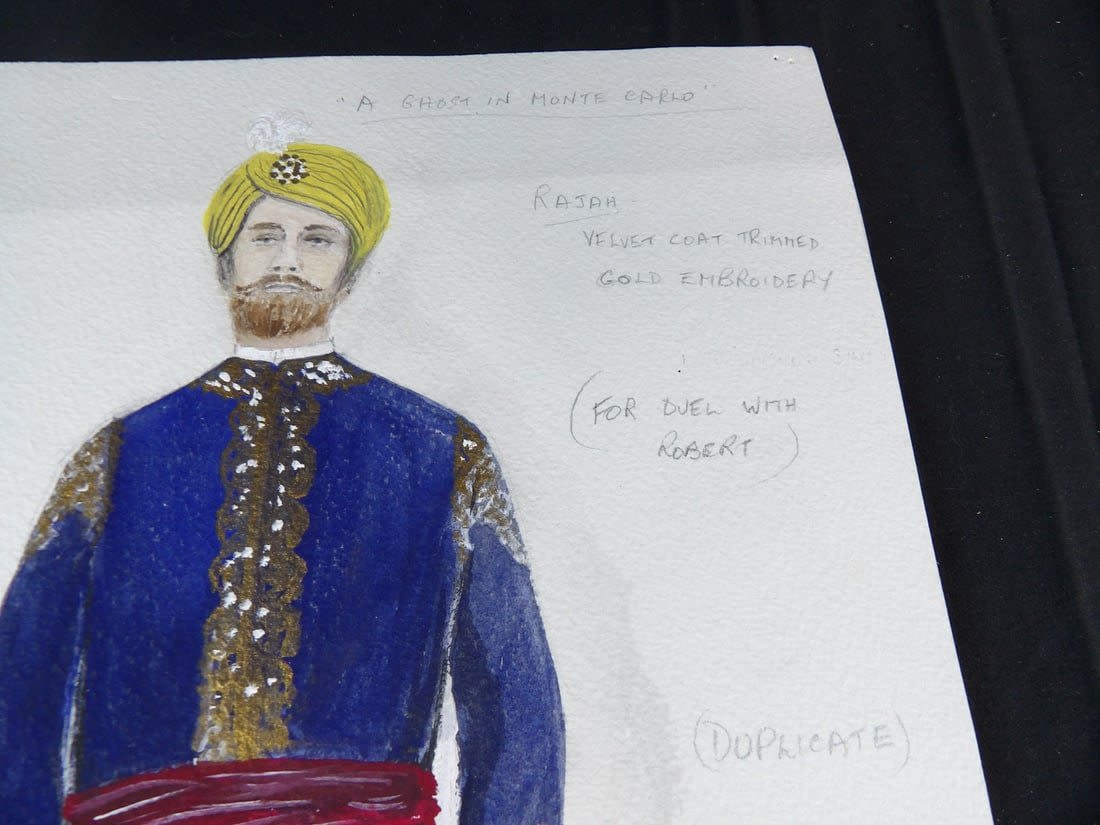 "A GHOST IN MONTE CARLO"
RAJAH -
VELVET COAT TRIMMED
GOLD EMBROIDERY
(FOR DUEL WITH
ROBERT)
(DUPLICATE)